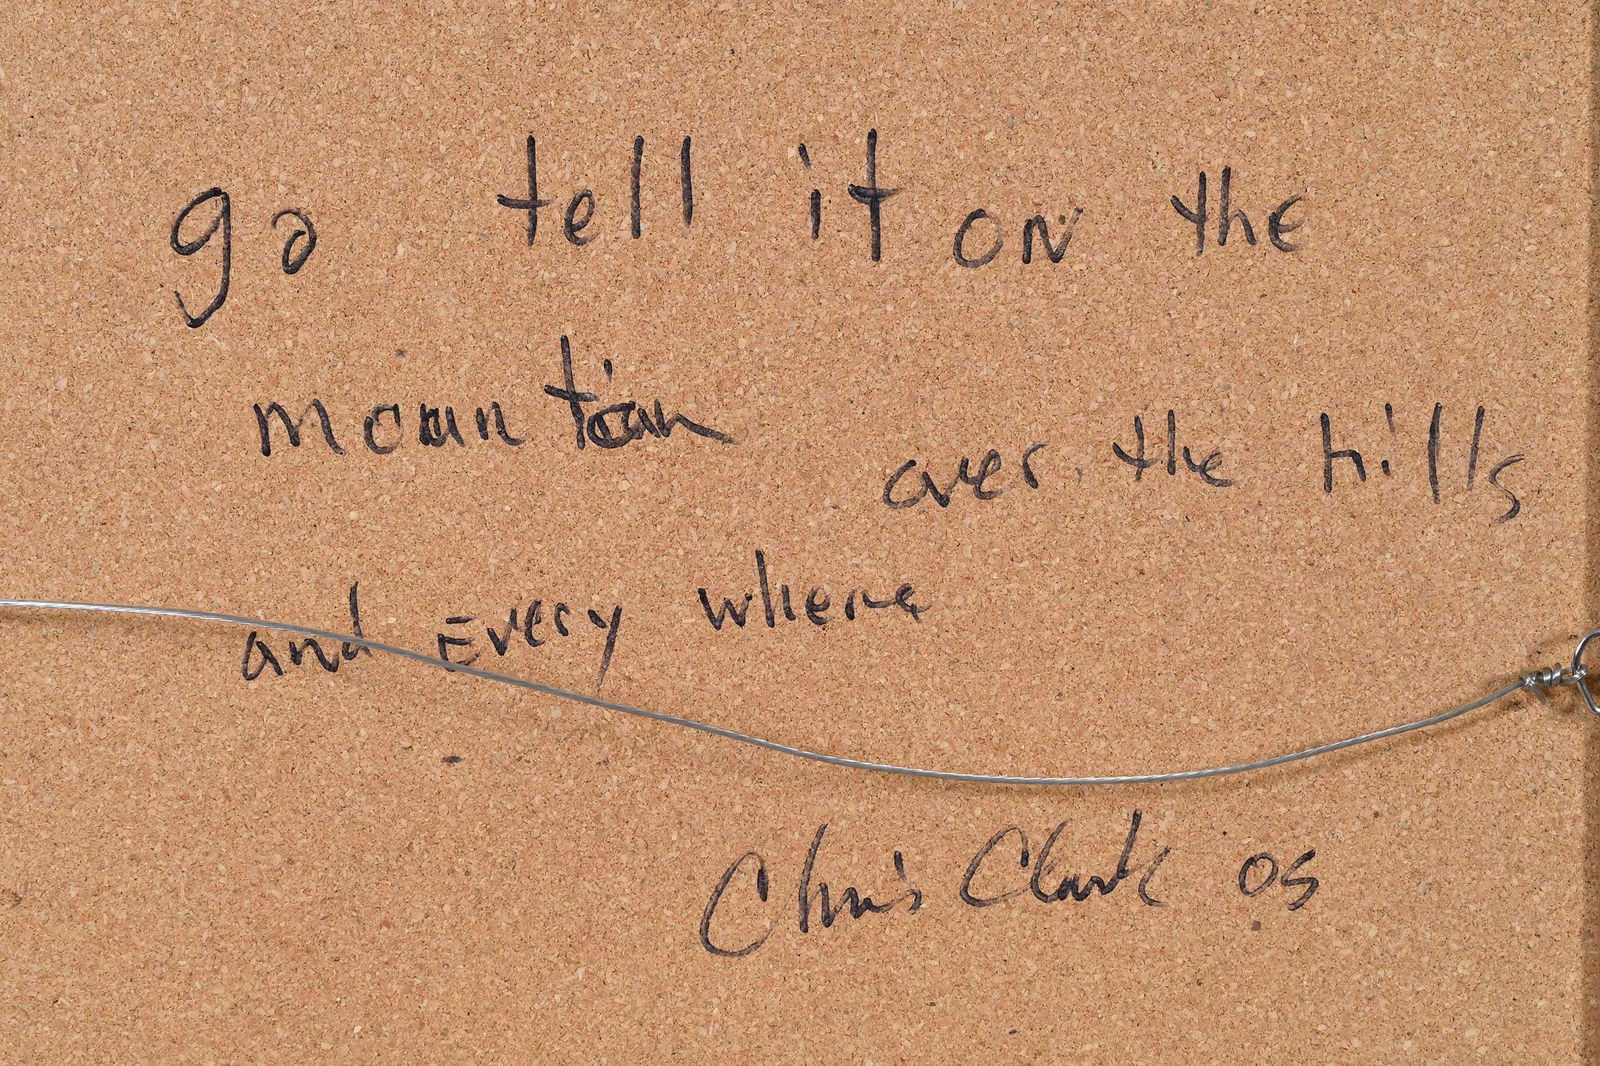 go tell it on the
mountian over the hills
and Every where
Chris Clark 05